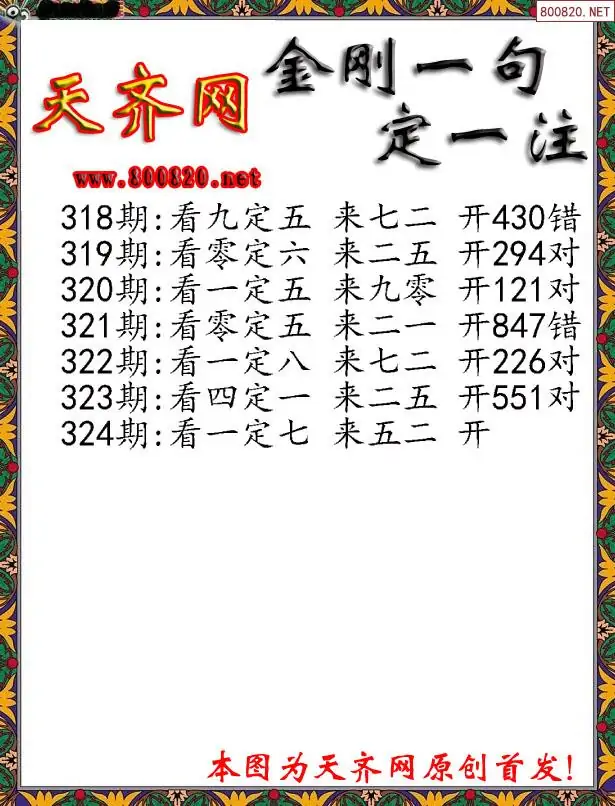 800820.NET
天齐网
金刚一句
定一注
www.800820.net
318期:看九定五 来七二 开430错
319期:看零定六 来二五 开294对
320期:看一定五 来九零 开121对
321期:看零定五 来二一 开847错
322期:看一定八 来七二 开226对
323期:看四定一 来二五 开551对
324期:看一定七 来五二 开
本图为天齐网原创首发!